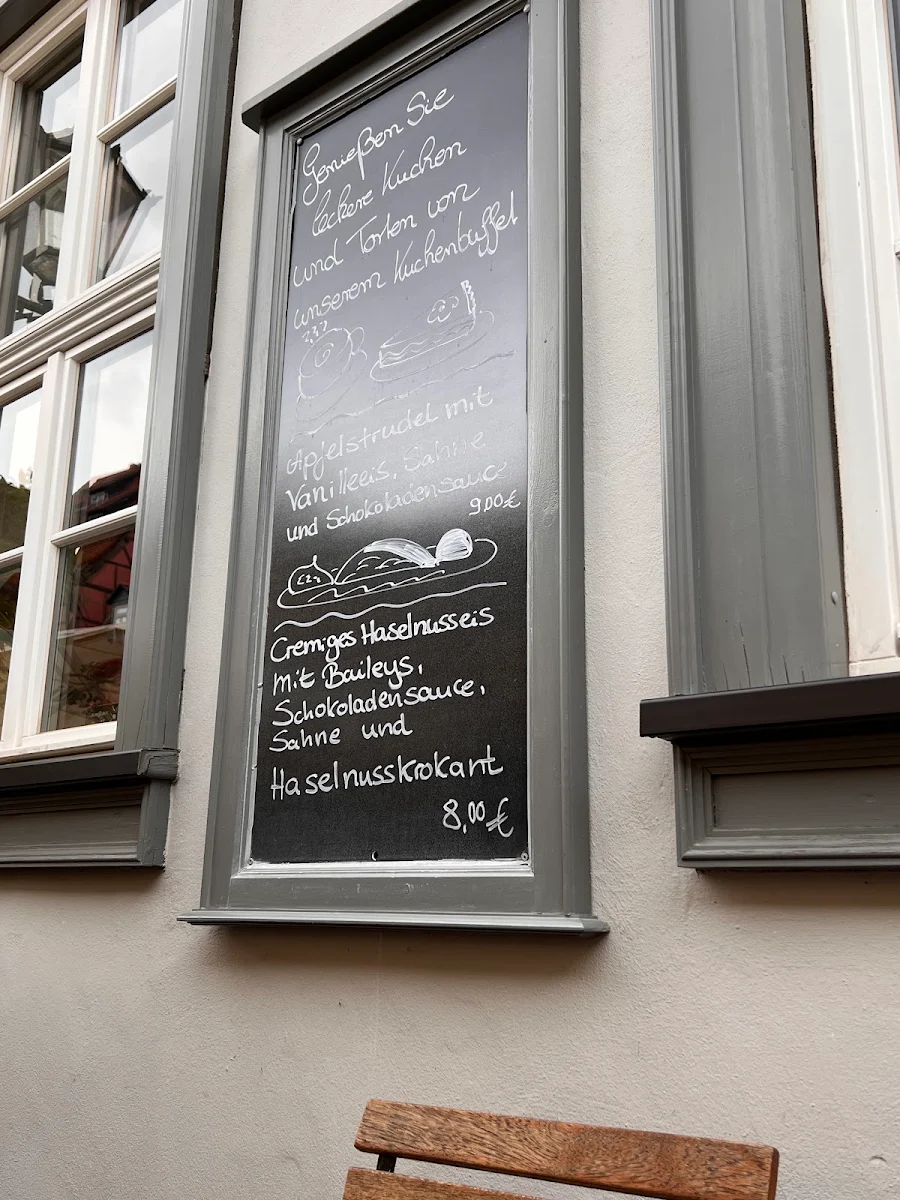 Genießen Sie
leckere Kuchen
und Torten von
unserem Kuchenbuffet
Apfelstrudel mit
Vanilleeis, Sahne
und Schokoladensauce
9,00€
Cremiges Haselnusseis
mit Baileys,
Schokoladensauce,
Sahne und
Haselnusskrokant
8,00€